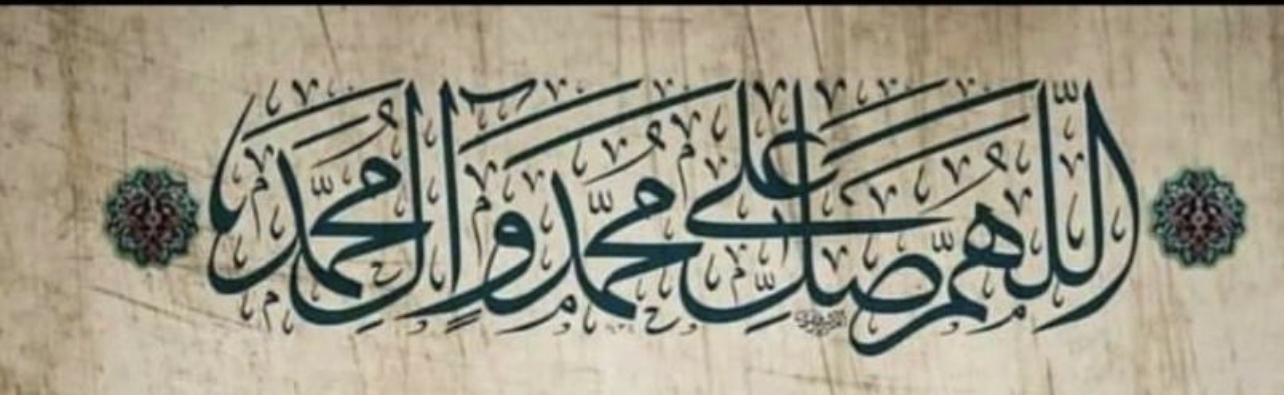 اللّهمّ صلّ على محمّد وآل محمّد